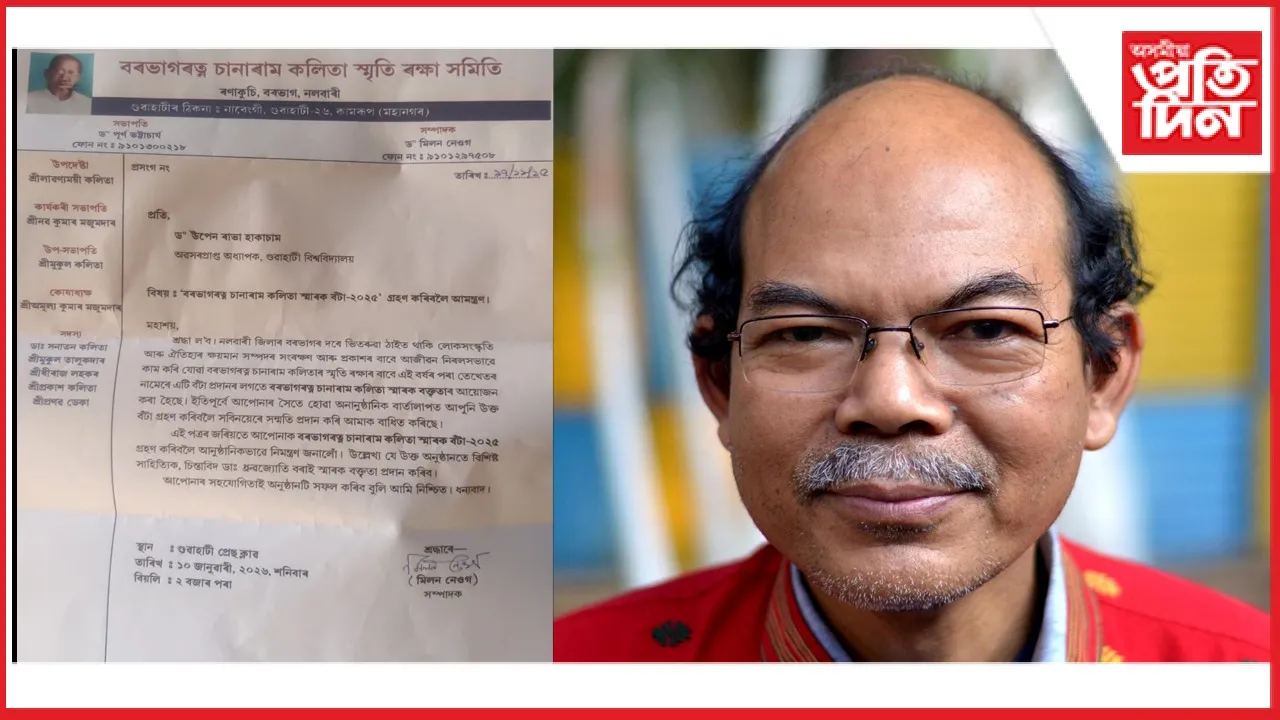 বৰভাগৰত্ন চানাৰাম কলিতা স্মৃতি ৰক্ষা সমিতি
ৰণাকুচি, বৰভাগ, নলবাৰী
গুৱাহাটীৰ ঠিকনা : নাৰেংগী, গুৱাহাটী-২৬, কামৰূপ (মহানগৰ)
সভাপতি
ড° পূৰ্ণ ভট্টাচাৰ্য
ফোন নং : ৯১০১৩০০২১৮
সম্পাদক
ড° মিলন নেওগ
ফোন নং : ৯১০১২৯৭৫০৮
উপদেষ্টা
শ্ৰীলাৱণ্যময়ী কলিতা
কাৰ্যকৰী সভাপতি
শ্ৰীনৱ কুমাৰ মজুমদাৰ
উপ-সভাপতি
শ্ৰীমুকুল কলিতা
কোষাধ্যক্ষ
শ্ৰীঅমূল্য কুমাৰ মজুমদাৰ
সদস্য
ডাঃ সনাতন কলিতা
শ্ৰীমুকুল তালুকদাৰ
শ্ৰীধীৰাজ লহকৰ
শ্ৰীপ্ৰকাশ কলিতা
শ্ৰীপ্ৰণৱ ডেকা
প্ৰসংগ নং
তাৰিখ :
প্ৰতি,
ড° উপেন ৰাভা হাকাচাম
অৱসৰপ্ৰাপ্ত অধ্যাপক, গুৱাহাটী বিশ্ববিদ্যালয়
বিষয় : ‘বৰভাগৰত্ন চানাৰাম কলিতা স্মাৰক বঁটা-২০২৫’ গ্ৰহণ কৰিবলৈ আমন্ত্ৰণ।
মহাশয়,
শ্ৰদ্ধা ল’ব। নলবাৰী জিলাৰ বৰভাগৰ দৰে ভিতৰুৱা ঠাইত থাকি লোকসংস্কৃতি
আৰু ঐতিহ্যৰ ক্ষয়মান সম্পদৰ সংৰক্ষণ আৰু প্ৰকাশৰ বাবে আজীৱন নিৰলসভাৱে
কাম কৰি যোৱা বৰভাগৰত্ন চানাৰাম কলিতাৰ স্মৃতি ৰক্ষাৰ বাবে এই বৰ্ষৰ পৰা তেখেতৰ
নামেৰে এটি বঁটা প্ৰদানৰ লগতে বৰভাগৰত্ন চানাৰাম কলিতা স্মাৰক বক্তৃতাৰ আয়োজন
কৰা হৈছে। ইতিপূৰ্বে আপোনাৰ সৈতে হোৱা অনানুষ্ঠানিক বাৰ্তালাপত আপুনি উক্ত
বঁটা গ্ৰহণ কৰিবলৈ সবিনয়েৰে সন্মতি প্ৰদান কৰি আমাক বাধিত কৰিছে।
এই পত্ৰৰ জৰিয়তে আপোনাক বৰভাগৰত্ন চানাৰাম কলিতা স্মাৰক বঁটা-২০২৫
গ্ৰহণ কৰিবলৈ আনুষ্ঠানিকভাৱে নিমন্ত্ৰণ জনালোঁ। উল্লেখ্য যে উক্ত অনুষ্ঠানতে বিশিষ্ট
সাহিত্যিক, চিন্তাবিদ ডাঃ ধ্ৰুৱজ্যোতি বৰাই স্মাৰক বক্তৃতা প্ৰদান কৰিব।
আপোনাৰ সহযোগিতাই অনুষ্ঠানটি সফল কৰিব বুলি আমি নিশ্চিত। ধন্যবাদ।
স্থান : গুৱাহাটী প্ৰেছ ক্লাব
তাৰিখ : ১০ জানুৱাৰী, ২০২৬, শনিবাৰ
বিয়লি : ২ বজাৰ পৰা
শ্ৰদ্ধাৰে—
মিলন নেওগ
( মিলন নেওগ )
সম্পাদক
অসমীয়া
প্ৰতি
দিন